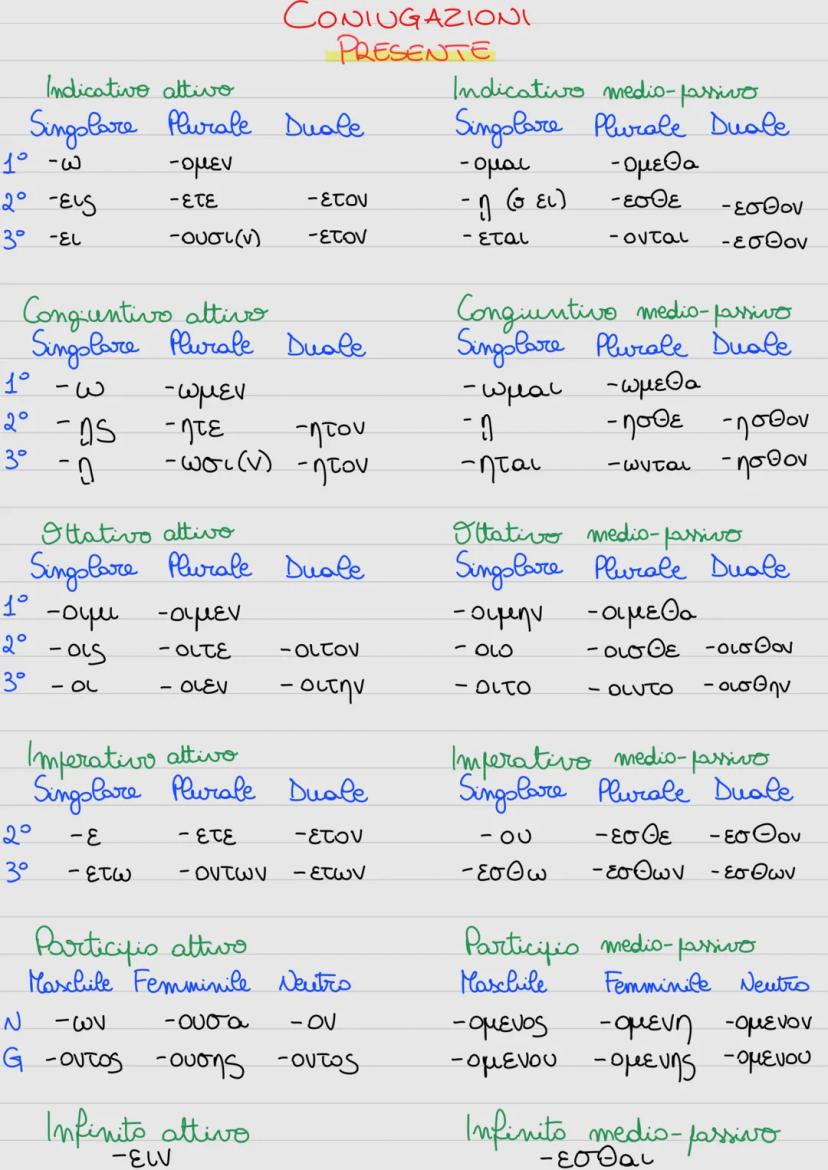 CONIUGAZIONI
PRESENTE
Indicativo attivo Indicativo medio-passivo
Singolare Plurale Duale Singolare Plurale Duale
1° -ω -ομεν -ομαι -ομεθα
2° -εις -ετε -ετον -ῃ (ο ει) -εσθε -εσθον
3° -ει -ουσι(ν) -ετον -εται -ονται -εσθον
Congiuntivo attivo Congiuntivo medio-passivo
Singolare Plurale Duale Singolare Plurale Duale
1° -ω -ωμεν -ωμαι -ωμεθα
2° -ῃς -ητε -ητον -ῃ -ησθε -ησθον
3° -ῃ -ωσι(ν) -ητον -ηται -ωνται -ησθον
Ottativo attivo Ottativo medio-passivo
Singolare Plurale Duale Singolare Plurale Duale
1° -οιμι -οιμεν -οιμην -οιμεθα
2° -οις -οιτε -οιτον -οιο -οισθε -οισθον
3° -οι -οιεν -οιτην -οιτο -οιντο -οισθην
Imperativo attivo Imperativo medio-passivo
Singolare Plurale Duale Singolare Plurale Duale
2° -ε -ετε -ετον -ου -εσθε -εσθον
3° -ετω -οντων -ετων -εσθω -εσθων -εσθων
Participio attivo Participio medio-passivo
Maschile Femminile Neutro Maschile Femminile Neutro
N -ων -ουσα -ον -ομενος -ομενη -ομενον
G -οντος -ουσης -οντος -ομενου -ομενης -ομενου
Infinito attivo Infinito medio-passivo
-ειν -εσθαι